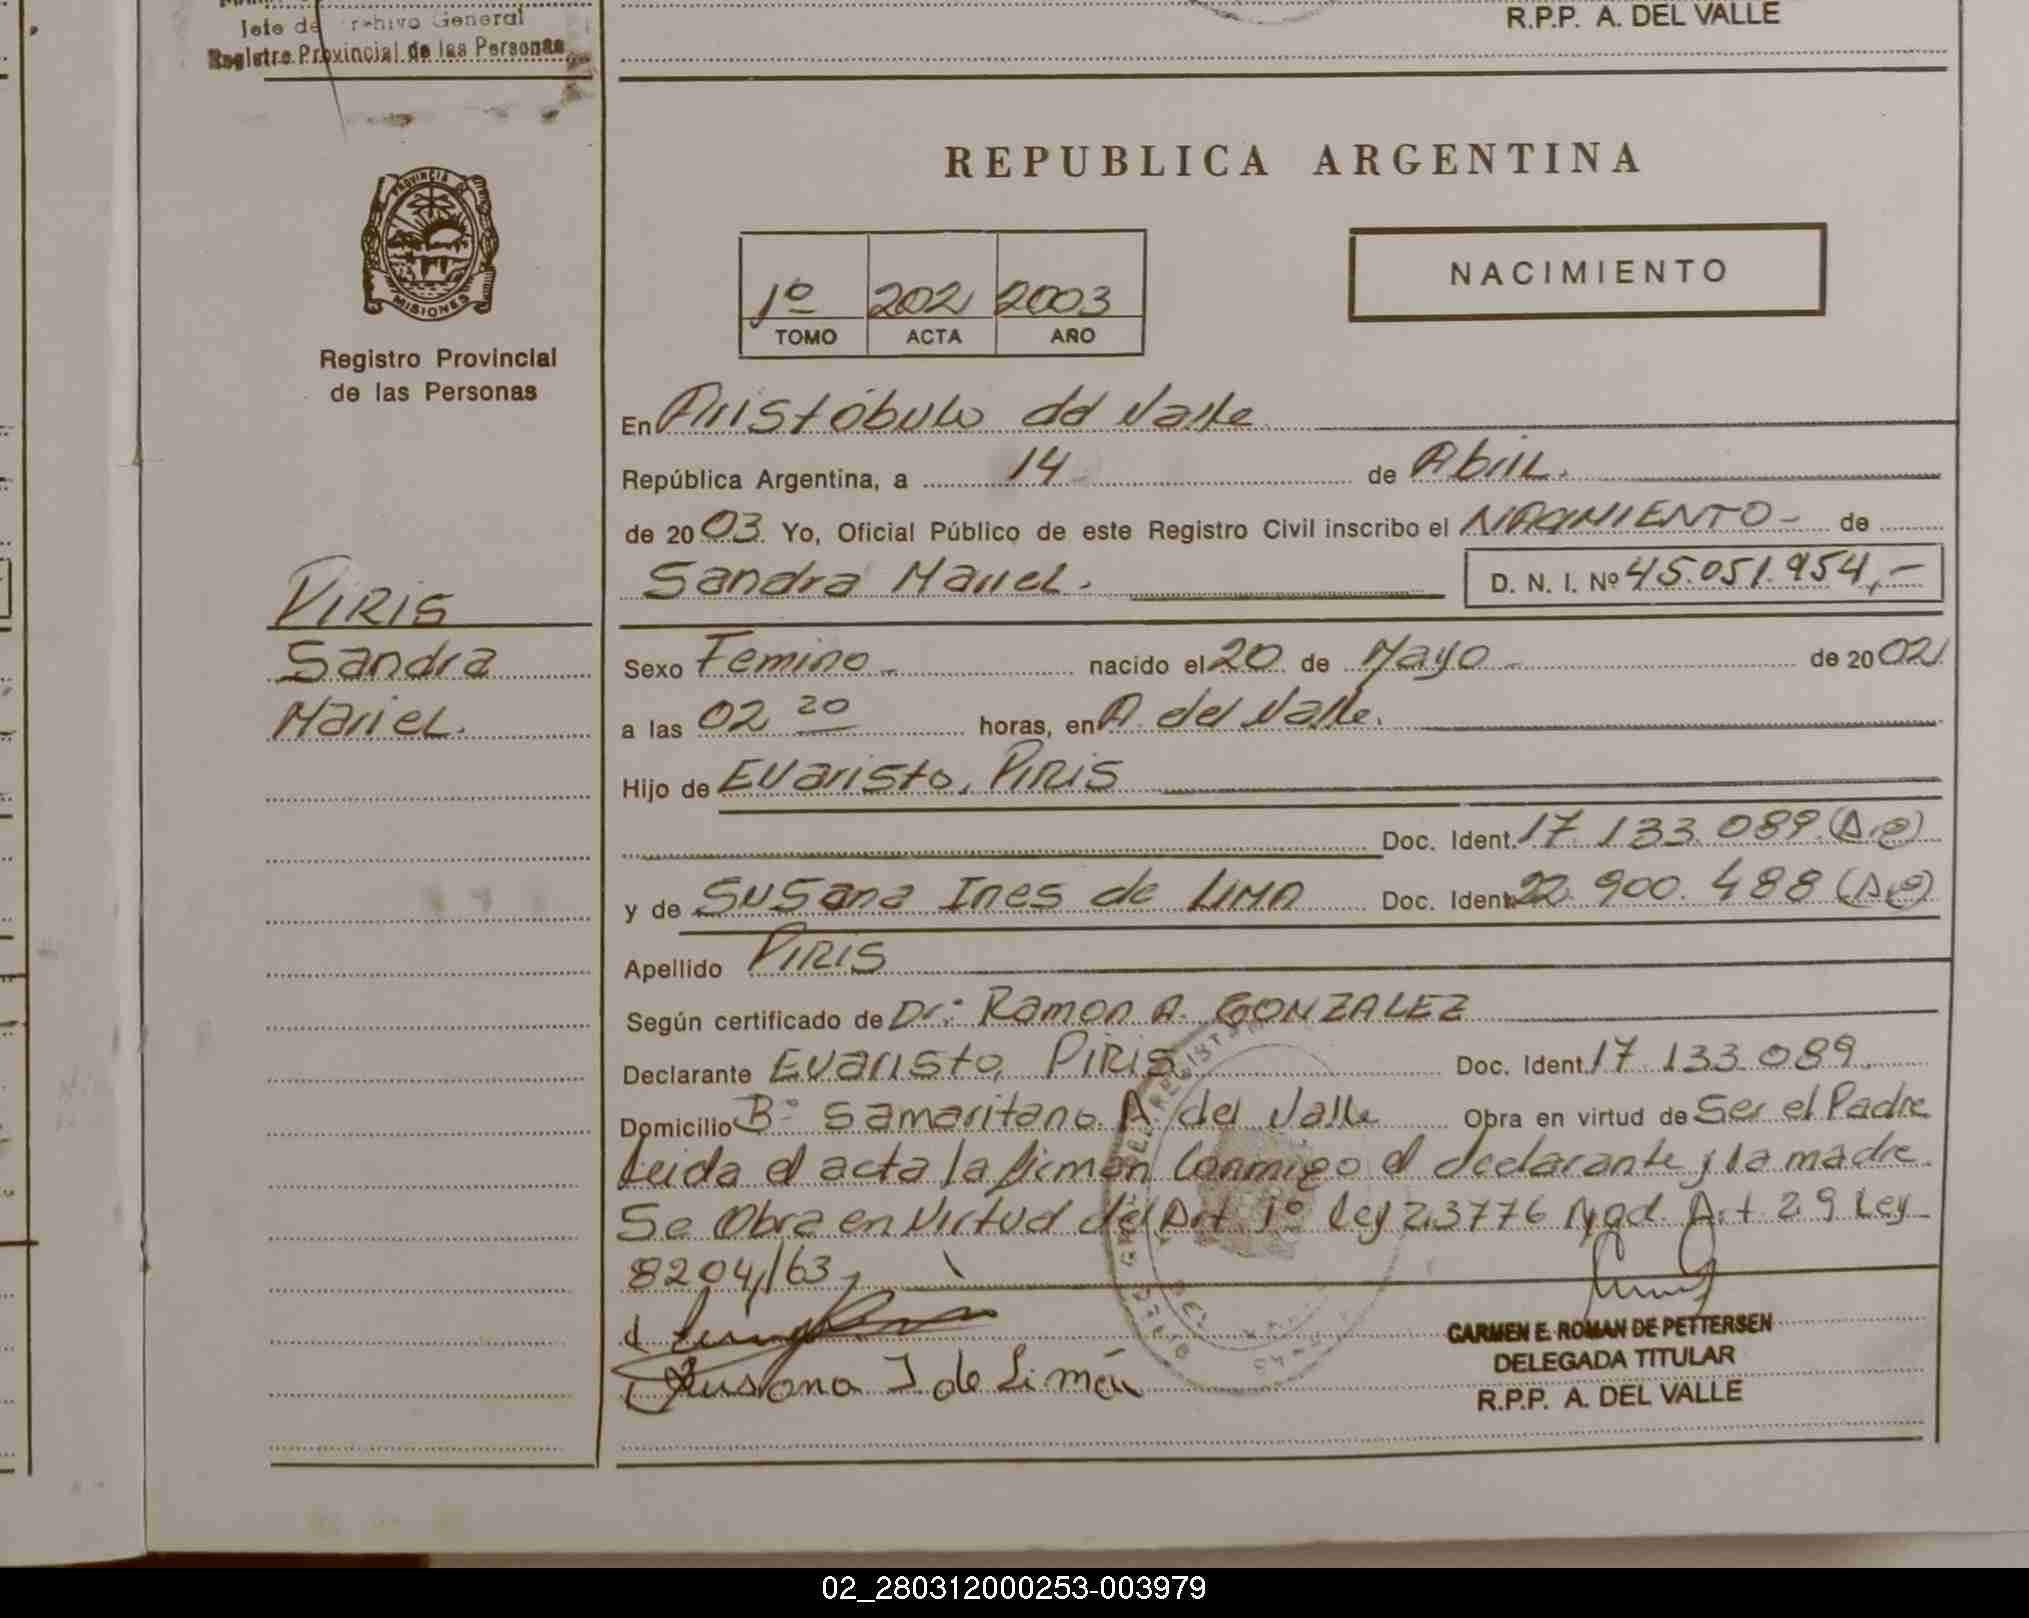 Jefe de Archivo General
Registro Provincial de las Personas
R.P.P. A. DEL VALLE
PROVINCIA DE
MISIONES
Registro Provincial
de las Personas
PIRIS
Sandra
Mariel.
REPUBLICA ARGENTINA
1º 202 2003
TOMO ACTA AÑO
NACIMIENTO
En Aristóbulo del Valle
República Argentina, a 14 de Abril.
de 2003. Yo, Oficial Público de este Registro Civil inscribo el NACIMIENTO - de
Sandra Mariel. D. N. I. Nº 45.051.954,-
Sexo Femino - nacido el 20 de Mayo - de 2002
a las 02 20 horas, en A. del Valle.
Hijo de Evaristo, PIRIS
Doc. Ident. 17.133.089 (A.@)
y de Susana Ines de LIMA Doc. Ident. 22.900.488 (A.@)
Apellido PIRIS
Según certificado de Dr: Ramon A. GONZALEZ
Declarante Evaristo, PIRIS Doc. Ident. 17.133.089
Domicilio Bº Samaritano. A. del Valle Obra en virtud de Ser el Padre
Leida el acta la firman Conmigo el declarante y la madre.
Se Obra en Virtud del Art 1º Ley 23776 Art. 29 Ley
8204/63,
Susana I de Lima
CARMEN E. ROMAN DE PETTERSEN
DELEGADA TITULAR
R.P.P. A. DEL VALLE
02_280312000253-003979